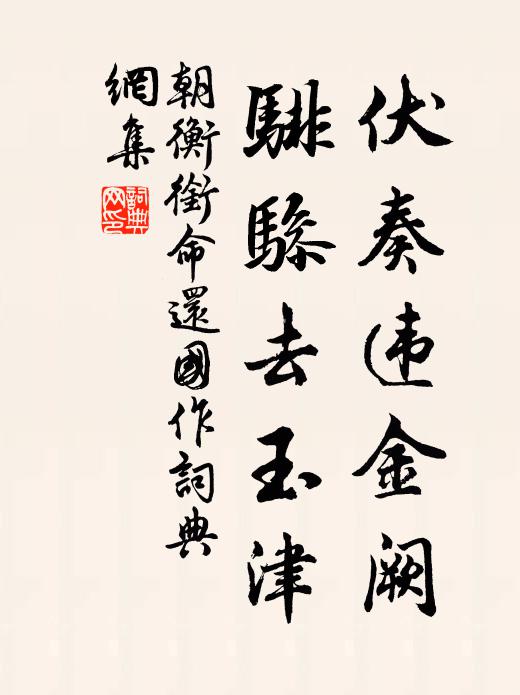 伏奏违金阙
騑骖去玉津
朝衡銜命還國作詞典
網集
詞典网印